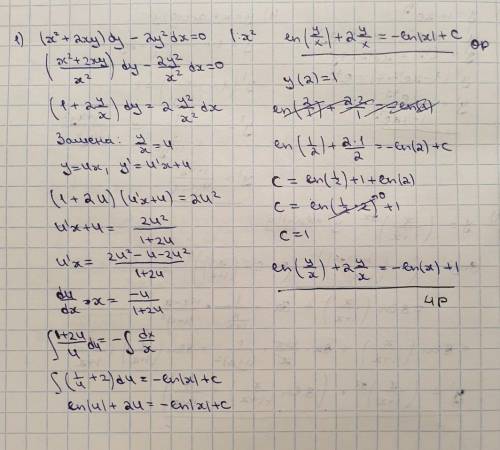 1) (x²+2xy)dy - 2y²dx=0 |:x²
(x²+2xy/x²)dy - 2y²/x² dx=0
(1+2y/x)dy = 2 y²/x² dx
Замена: y/x = u
y=ux, y'=u'x+u
(1+2u)(u'x+u)=2u²
u'x+u = 2u²/1+2u
u'x = 2u²-u-2u²/1+2u
du/dx · x = -u/1+2u
∫ 1+2u/u du = -∫ dx/x
∫(1/u +2)du = -ln|x|+c
ln|u|+2u = -ln|x|+c
ln(y/x)+2 y/x = -ln|x|+c
ОР
y(2)=1
ln(1/2)+ 2·1/2 = -ln(2)+c
c = ln(1/2)+1+ln(2)
c = ln(1/2·2)⁰+1
c=1
ln(y/x)+2 y/x = -ln(x)+1
ЧР